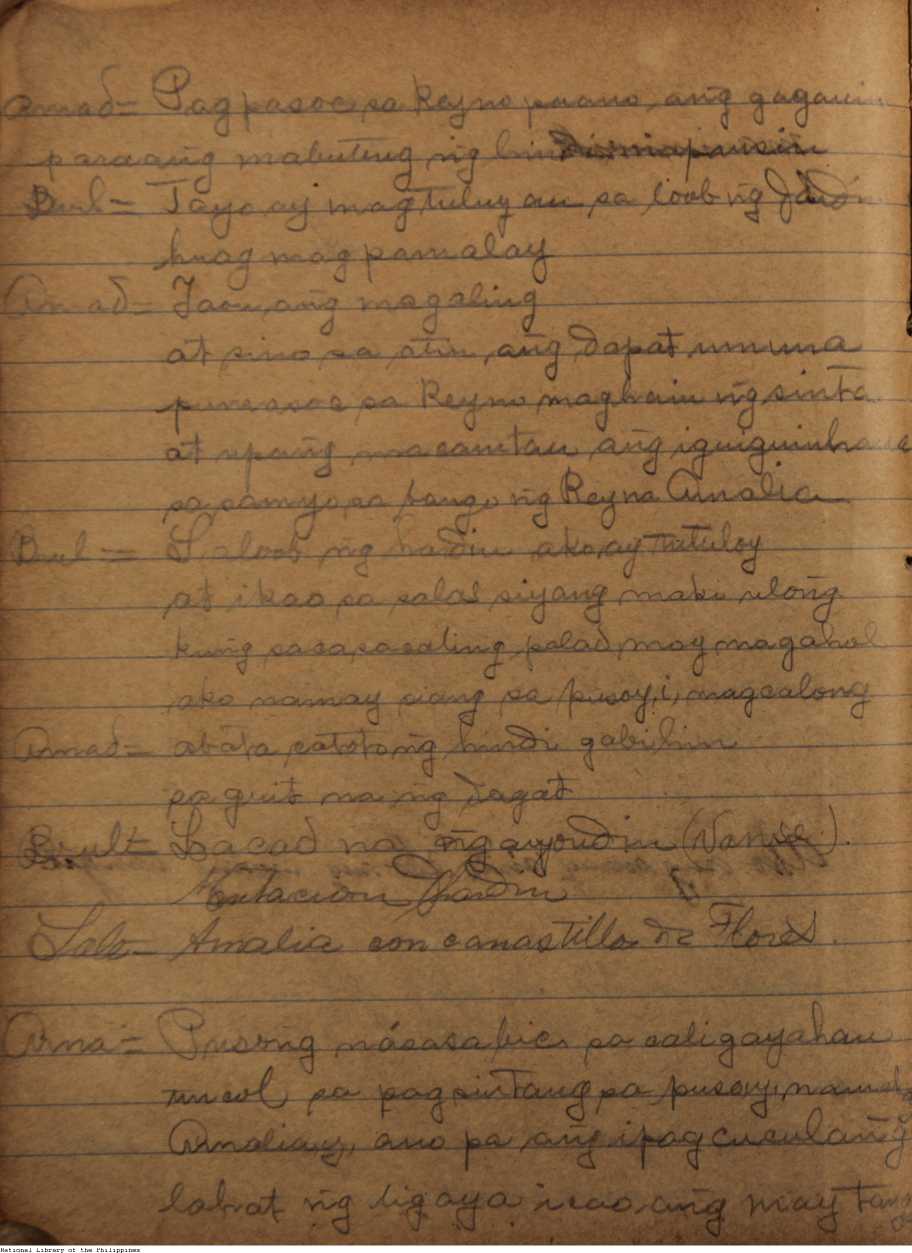 Amad= Pagpasoc sa Reyno paano, ang gagawin
paraang mabuting ng hindi mapinsin
Bul= Tayo ay magtuluyan sa loob ng Jardin
huag magpamalay
Amad= Iaon, ang magaling
at sino sa atin, ang dapat umuna
pumasoc sa Reyno maghain ng sinta
at upang macamtan ang iguiguinhaua
sa samyo, sa bango, ng Reyna Amalia
Bul= Sa loob ng hardin ako, ay tutuloy
at ikao sa salas siyang maki ulong
kung sacasacaling palad, moy, magahol
ako namay siang sa pusoy, i, magcalong
Amad= abata catotong hindi gabihin
sa guit na ng dagat
Bult= Lacad na ngayondin (Vanse).
Mutacion Jardin
Sale= Amalia con canastillo de Flores.
Ama= Pusong násasabic sa caligayahan
tuncol sa pagsintang sa pusoy, namahay
Amaliay, ano pa ang ipagcuculang̃
lahat ng ligaya icao, ang may tang
National Library of the Philippines